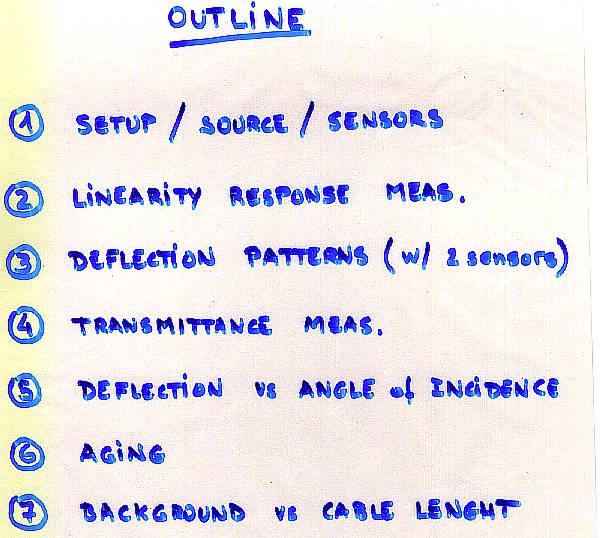 OUTLINE
1 SETUP / SOURCE / SENSORS
2 LINEARITY RESPONSE MEAS.
3 DEFLECTION PATTERNS (w/ 2 sensors)
4 TRANSMITTANCE MEAS.
5 DEFLECTION vs ANGLE of INCIDENCE
6 AGING
7 BACKGROUND vs CABLE LENGHT